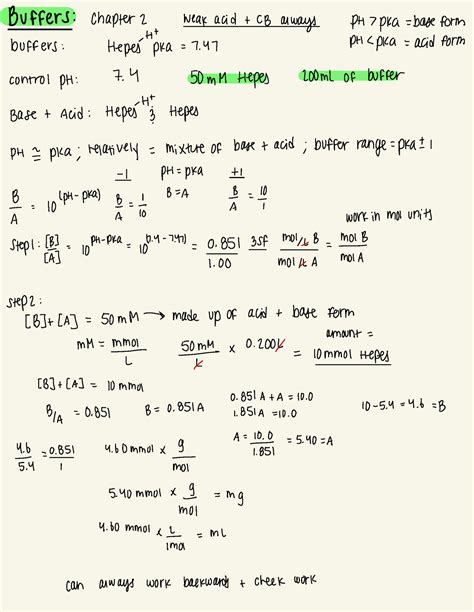 Buffers: Chapter 2 Weak acid + CB always pH > pKa = base form
pH < pKa = acid form
buffers: Hepes-H+ pKa = 7.47
control pH: 7.4 50 mM Hepes 200mL of buffer
Base + Acid: Hepes-H+ & Hepes
pH ≅ pKa ; relatively = mixture of base + acid ; buffer range = pKa ± 1
-1 pH = pKa +1
B/A = 10^(pH-pKa) B/A = 1/10 B=A B/A = 10/1
work in mol units
Step 1: [B]/[A] = 10^pH-pKa = 10^(7.4-7.47) = 0.851/1.00 3sf mol/L B / mol/L A = mol B / mol A
Step 2:
[B]+[A] = 50 mM → made up of acid + base form
mM = mmol/L 50 mM/L x 0.200L = amount = 10 mmol Hepes
[B]+[A] = 10 mmol
B/A = 0.851 B = 0.851A 0.851A + A = 10.0 10-5.4 = 4.6 = B
1.851A = 10.0
A = 10.0/1.851 = 5.40 = A
4.6/5.4 = 0.851/1 4.60 mmol x g/mol
5.40 mmol x g/mol = mg
4.60 mmol x L/1mol = mL
can always work backwards + check work